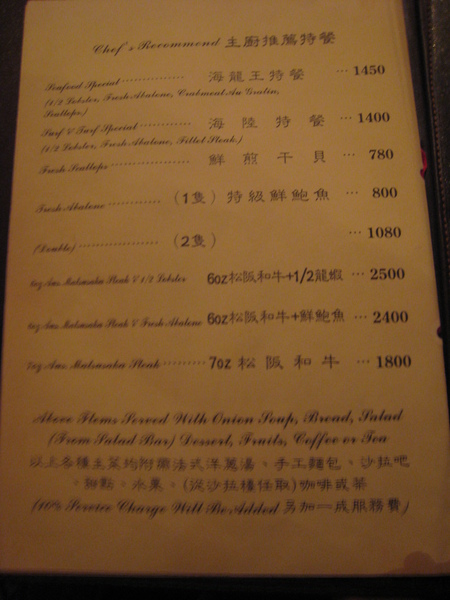 Chef's Recommend 主廚推薦特餐
Seafood Special ··············· 海龍王特餐 ··· 1450
(1/2 Lobster, Fresh Abalone, Crabmeat Au Gratin,
Scallops)
Surf & Turf Special ··········· 海陸特餐 ··· 1400
(1/2 Lobster, Fresh Abalone, Fillet Steak)
Fresh Scallops ················· 鮮煎干貝 ··· 780
Fresh Abalone ············ (1隻) 特級鮮鮑魚 ··· 800
(Double) ·················· (2隻) ··· 1080
6oz Aus. Matsusaka Steak & 1/2 Lobster 6oz松阪和牛+1/2龍蝦 ··· 2500
6oz Aus. Matsusaka Steak & Fresh Abalone 6oz松阪和牛+鮮鮑魚 ··· 2400
7oz Aus. Matsusaka Steak ········· 7oz松阪和牛 ··· 1800
Above Items Served With Onion Soup, Bread, Salad
(From Salad Bar) Dessert, Fruits, Coffee or Tea
以上各種主菜均附贈法式洋蔥湯、手工麵包、沙拉吧
、甜點、水果、(從沙拉檯任取)咖啡或茶
(10% Service Charge Will Be Added 另加一成服務費)